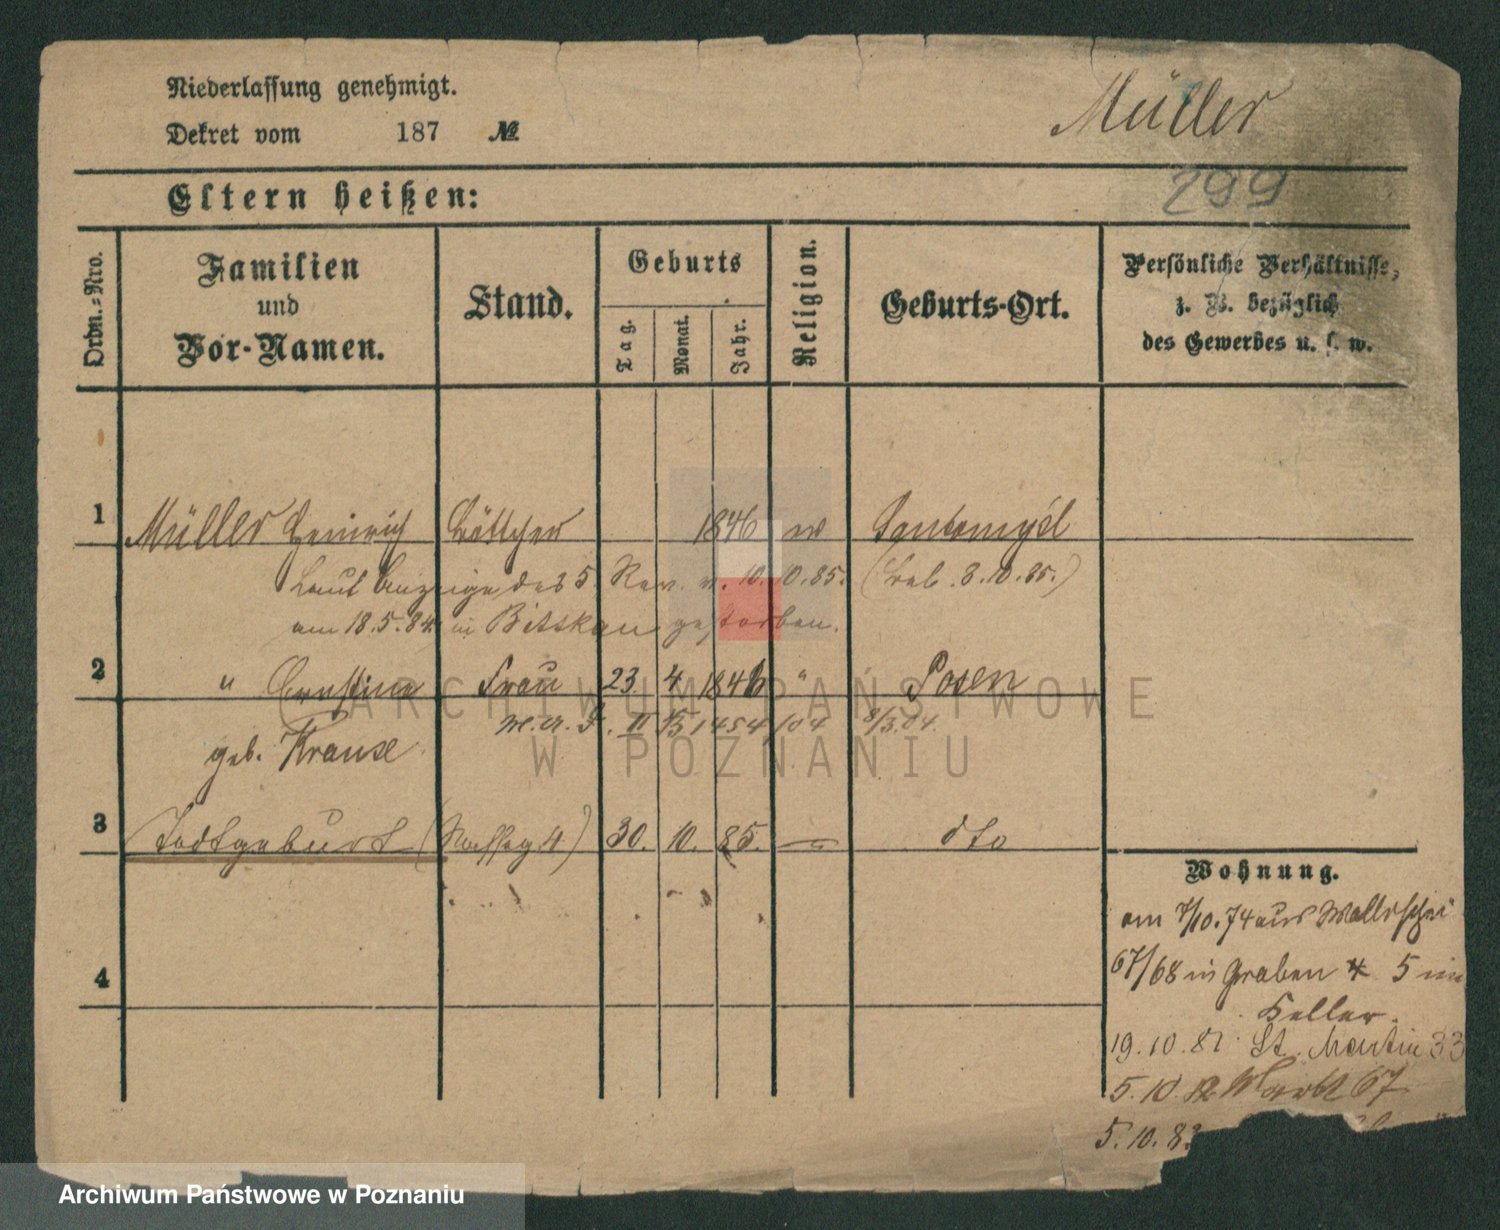 Niederlassung genehmigt.
Müller
Dekret vom 187 №
299
Eltern heißen:
Ordn.-Nro.
Familien und Vor-Namen.
Stand.
Geburts
Tag.
Monat.
Jahr.
Religion.
Geburts-Ort.
Persönliche Verhältnisse,
z. B. bezüglich
des Gewerbes u. s. w.
1 Müller Heinrich Böttcher 1846 Santomyśl
Laut Anzeige des 5. Rev. v. 10. 10. 85. 8.10.85.)
am 18.5.84. in gestorben.
2 " Ernstine Frau 23 4 1846 " Posen
geb. Krause
II 1454/04 8/3.04.
3 Todtgeburt 30. 10. 85. — dto
Wohnung.
am 7/10.74 aus Wallischei
67/68 in Graben 4 5 im
Keller.
4
19.10.81. St. Martin 33
5.10. Markt 67
5.10.83
ARCHIWUM PAŃSTWOWE
W POZNANIU
Archiwum Państwowe w Poznaniu